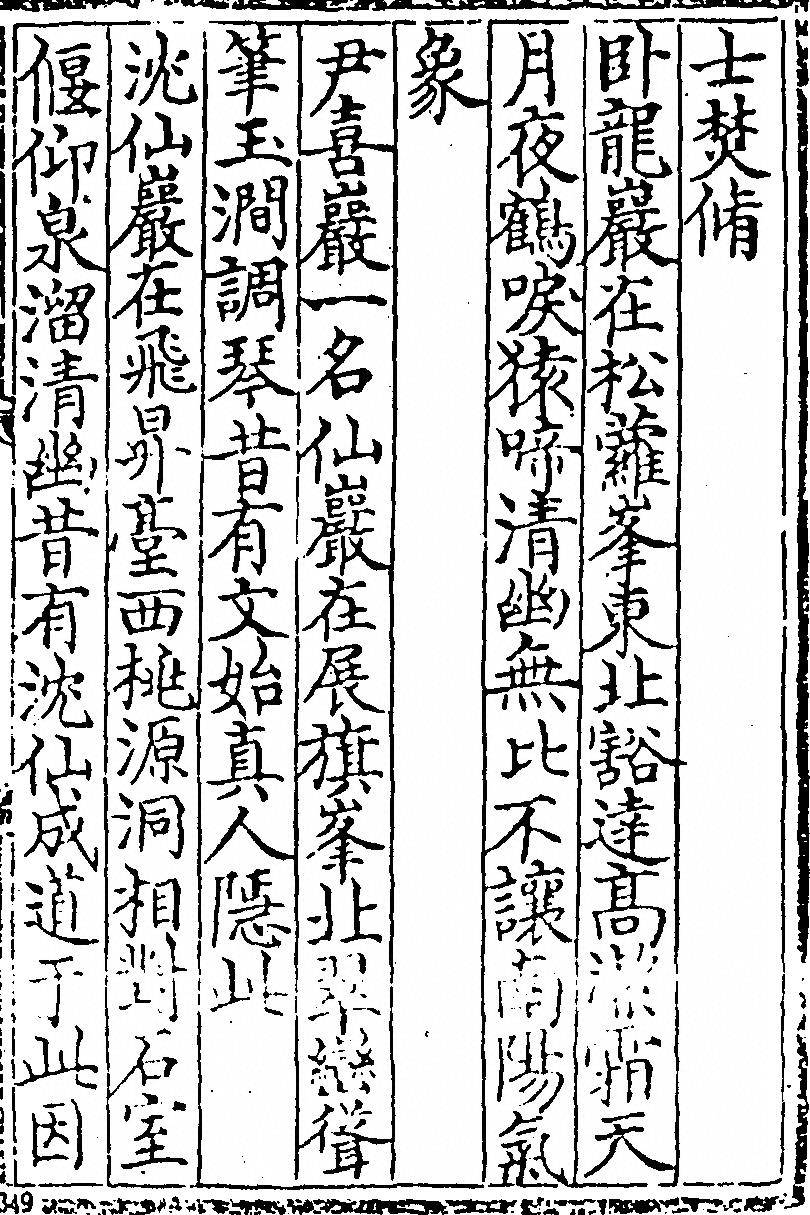 士焚脩
卧龍巖在松蘿峯東北豁達高深霜天
月夜鶴唳猿啼清幽無比不讓南陽氣
象
尹喜巖一名仙巖在展旗峯北翠巒聳
筆玉澗調琴昔有文始真人隱此
沈仙巖在飛昇臺西桃源洞相對石室
偃仰泉溜清幽昔有沈仙成道于此因
349